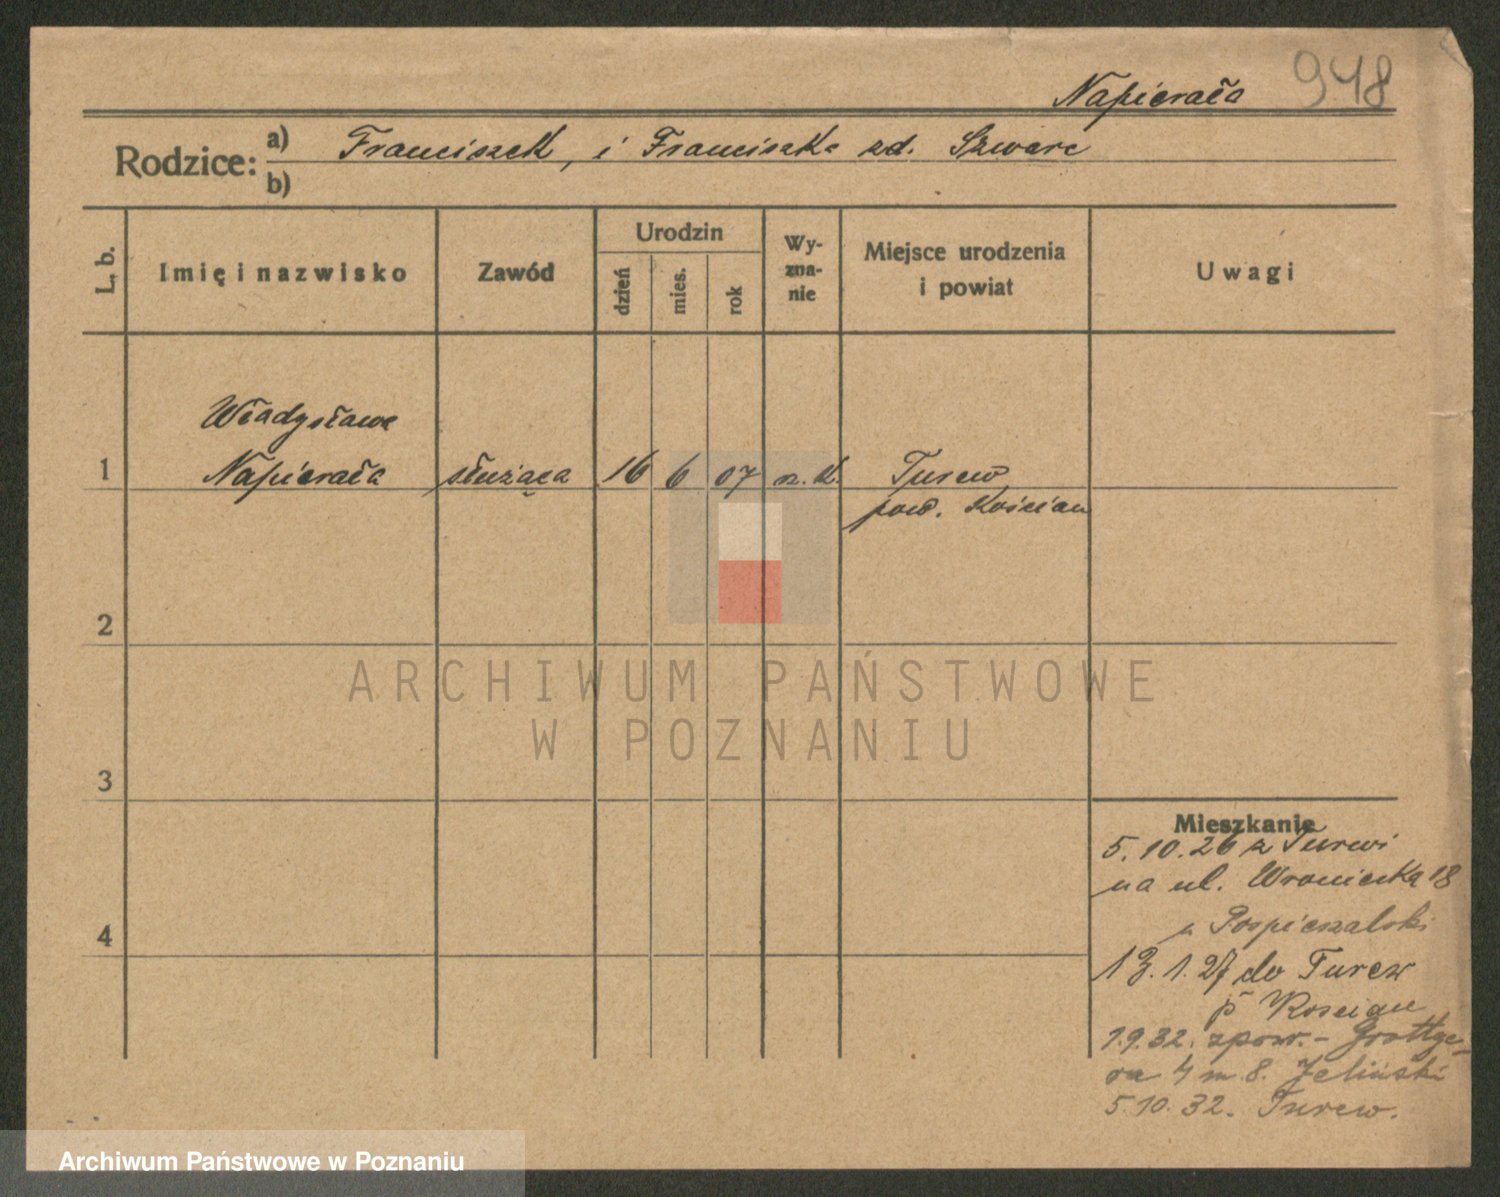 948
Napierała
Rodzice: a) Franciszek, i Franciszka zd. Szwarc
b)
L. b. Imię i nazwisko Zawód Urodzin dzień mies. rok Wyzna-nie Miejsce urodzenia i powiat Uwagi
Władysława
1 Napierała służąca 16 6 07 rz. k. Turew
pow. Kościan
2
ARCHIWUM PAŃSTWOWE
W POZNANIU
3
Mieszkanie
5.10.26 z Turwi
na ul. Wroniecką 18
u Pospieszalski
4
13.1.27 do Turew
p. Kościan
1.9.32. zpow. - Grottge-
ra 4 m 8. Jeliński
5.10.32. Turew.
Archiwum Państwowe w Poznaniu